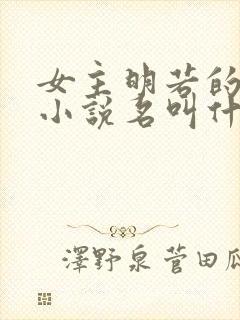 女主明若的
小說名叫什
澤野泉菅田